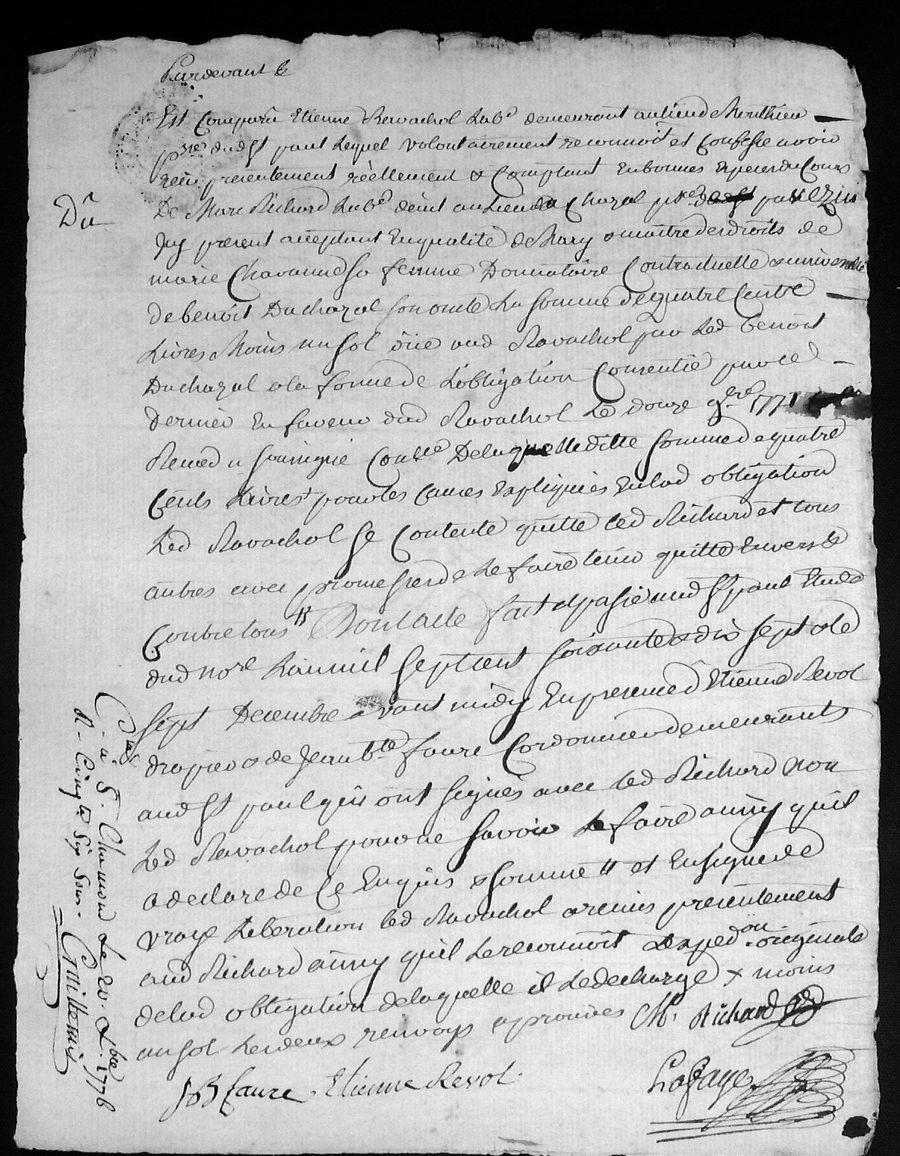 Pardevant &c
Est Comparu Etienne Ravachol Lab.r demeurant au lieu de Monthieu
p.sse dud St paul lequel volontairement reconnoit et Confesse avoir
reçu presentement réellement & Comptant en bonnes Especes du Cours
Du
De Marc Richard Lab.r de int au lieu du Chazal p.sse par ezin
Icy present acceptant En qualité de Mary & maitre des droits de
marie Chavanne sa femme Donnataire Contractuelle & universelle
de benoit Duchazal son oncle La somme de quatre Cents
Livres Moins un sol düe aud Ravachol par Led benoit
Duchazal a la forme de L'obligation Consentie par ce
Dernier En faveur dud Ravachol Le douze 9bre 1771
Receu du soussigné Con.lle De laquelle ditte Somme de quatre
Cents Livres + pour les Causes Expliquées En lad obligation
Led Ravachol se Contente quitte led Richard et tous
autres avec promesse de le faire tenir quitte Envers &
Contre tous Dont acte fait et passé aud St paul Etude
dud nore L'an mil sept cent soixante & dix sept & le
sept Decembre avant midy En presence d'Etienne Revol
drapier & de Jean B.te faure Cordonnier demeurants
aud St paul qui ont signés avec led Richard non
Led Ravachol pour ne savoir Le faire ainsy qu'il
a declaré de Ce Enquis & sommé et En signe de
vraye Liberation led Ravachol a remis presentement
aud Richard ainsy qu'il Le reconnoit Expedon originale
de lad obligation de laquelle il Le decharge x moins
un sol Les deux renvoys aprouvés M. Richard
JB faure Etienne Revol
Lafaye
C.lé à St Chamond Le 20. Xbre 177
R. Cinq &